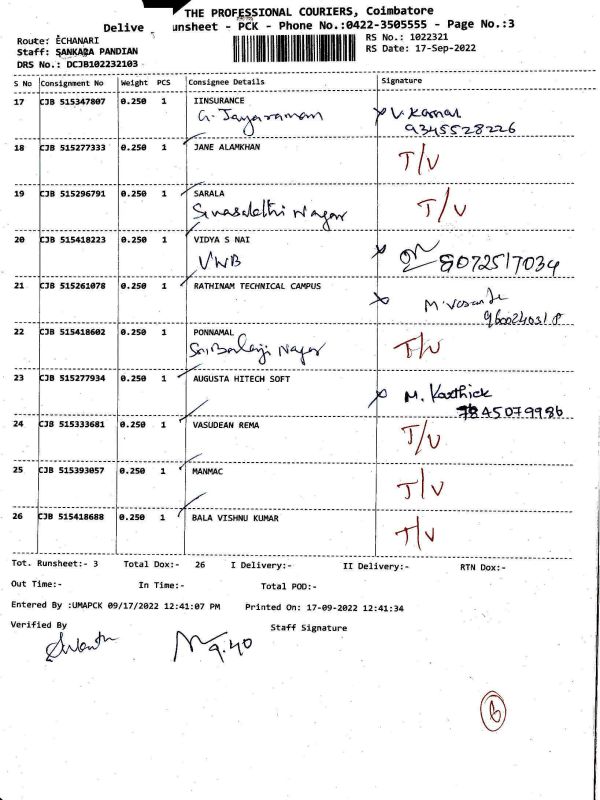 THE PROFESSIONAL COURIERS, Coimbatore
Delive unsheet - PCK - Phone No.:0422-3505555 - Page No.:3
Route: ECHANARI
RS No.: 1022321
Staff: SANKARA PANDIAN
RS Date: 17-Sep-2022
DRS No.: DCJB102232103
S No Consignment No Weight PCS Consignee Details Signature
17 CJB 515347807 0.250 1 IINSURANCE
G. Jayaraman V. Kamal
9345528226
18 CJB 515277333 0.250 1 JANE ALAMKHAN
T/V
19 CJB 515296791 0.250 1 SARALA
Nagar T/V
20 CJB 515418223 0.250 1 VIDYA S NAI
VWB 8072517034
21 CJB 515261078 0.250 1 RATHINAM TECHNICAL CAMPUS
22 CJB 515418602 0.250 1 PONNAMAL
Sri Balaji Nagar T/V
23 CJB 515277934 0.250 1 AUGUSTA HITECH SOFT
M. Karthick
7845079986
24 CJB 515333681 0.250 1 VASUDEAN REMA
T/V
25 CJB 515393057 0.250 1 MANMAC
T/V
26 CJB 515418688 0.250 1 BALA VISHNU KUMAR
T/V
Tot. Runsheet:- 3 Total Dox:- 26 I Delivery:- II Delivery:- RTN Dox:-
Out Time:- In Time:- Total POD:-
Entered By :UMAPCK 09/17/2022 12:41:07 PM Printed On: 17-09-2022 12:41:34
Verified By Staff Signature
9.40
6